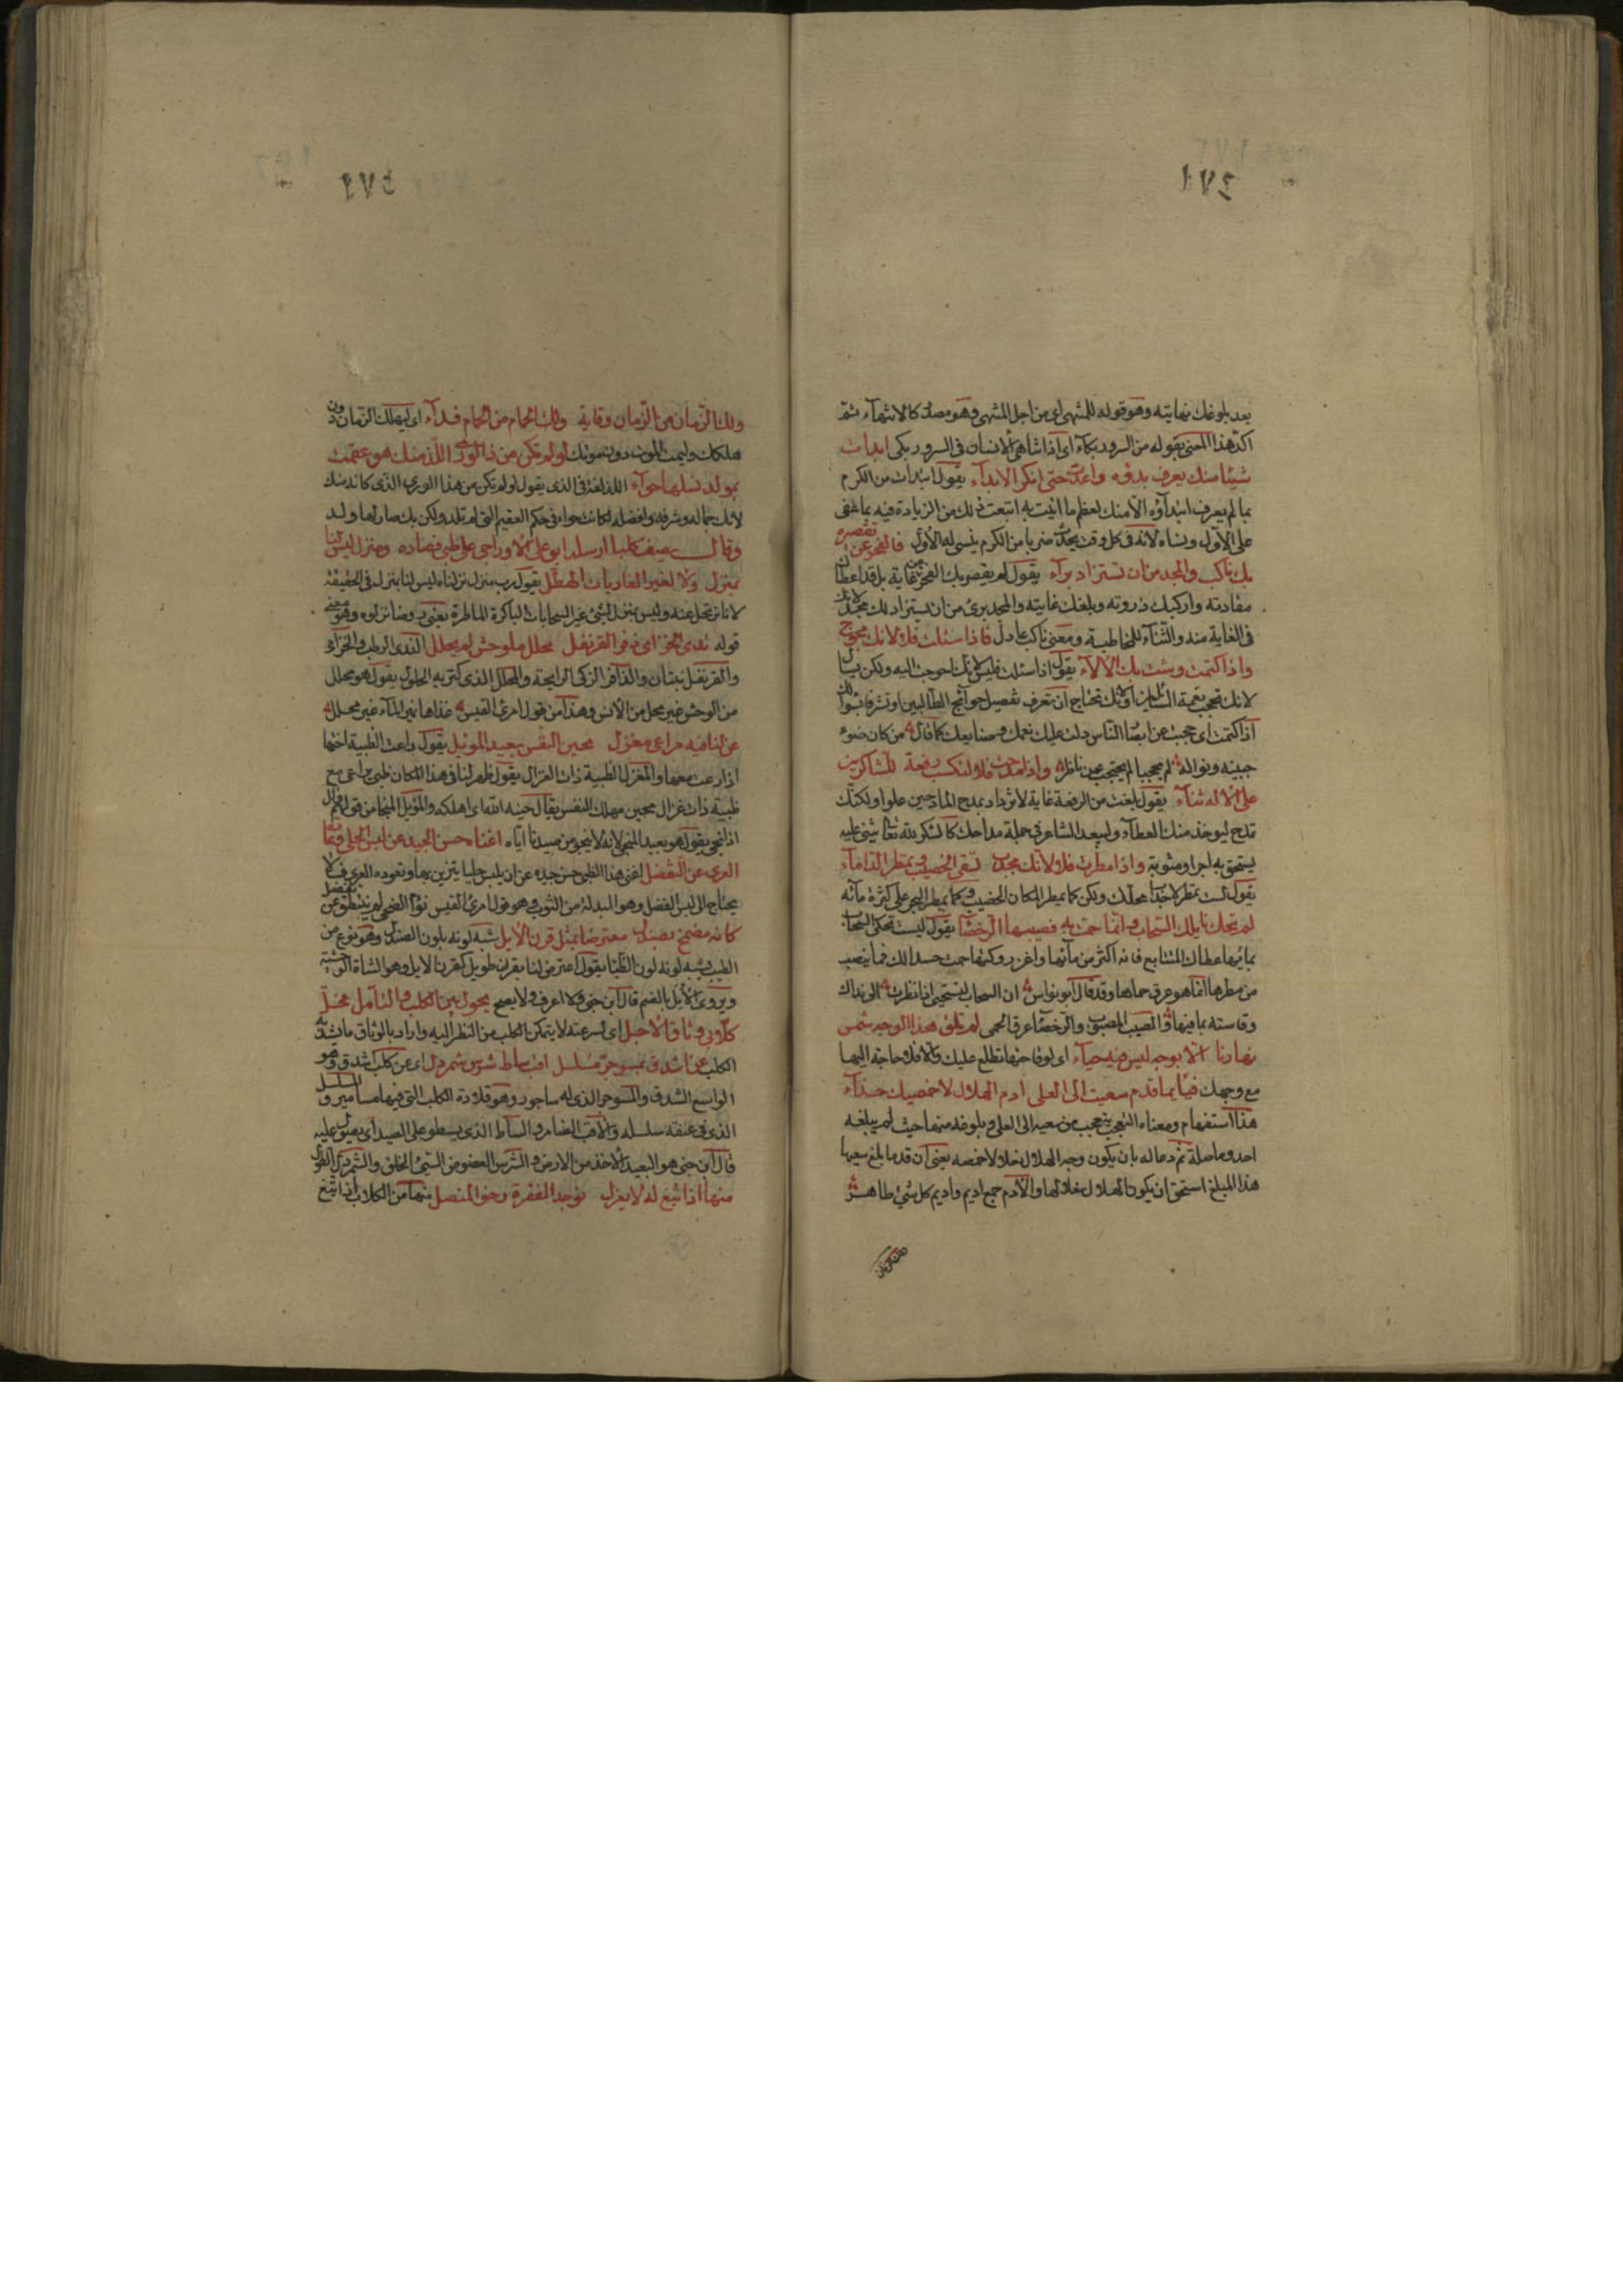 ٤٧١
بعد بلوغك نهايته وهو قوله للمنتهى اى من اجل المنتهى وهو مصدر كالانتهاء ثم
اكد هذا المعنى بقوله من السرور بكاء اى اذا تناهى الانسان فى السرور بكى ابدأت
شيئا منك يعرف بدؤه واعدت حتى انكر الابداء يقول ابتدأت من الكرم
بما لم يعرف ابتداؤه الا منك لعظم ما اتيت به اتبعت ذلك من الزيادة فيه ما غطى
على الاول ونساه لانه فى كل وقت يحدث ضربا من الكرم ينسى له الاول فالفخر عن تقصيره
بك ناكب والمجد من ان تستزاد براء يقول لم يقصر بك الفخر عن غاية بل قد اعطاك
مقادته واركبك ذروته وبلغك غايته والمجد برئ من ان يستزاد لك مجد لانك
فى الغاية منه والتاء للمخاطبة ومعنى ناكب عادل فاذا سئلت فلا لانك محوج
واذا كتمت وشت بك الآلاء يقول اذا سئلت فليس لانك احوجت اليه ولكن يسأل
لانك تحب نغمة السائلين او لانك تحتاج ان تعرف تفصيل حوائج الطالبين او تشرفا بسؤالك
اذا كتمت اى حجبت عن ابصار الناس دلت عليك نعمك وصنايعك كما قال من كان ضوء
جبينه ونواله لم يحجبا لم يحتجب عن ناظر واذا مدحت فلا لتكسب رفعة للشاكرين
على الاله ثناء يقول بلغت من الرفعة غاية لا تزداد بمدح المادحين علوا ولكنك
تمدح ليوخذ منك العطاء وليعد الشاعر فى جملة مداحك كالشكر لله تعالى يثنى عليه
يستحق به اجرا ومثوبة واذا مطرت فلا لانك مجدب تسقى الخصيب وتمطر الدأماء
يقول لست تمطر لاجداب محلك ولكن كما يمطر المكان الخصيب وكما يمطر البحر على كثرة مائه
لم تحك نايلك السحاب وانما حمت به فصبيبها الرحضاء يقول ليست تحكى السحاب
بمائها عطاك المتتابع فانه اكثر من مائها واغزر ولكنها حمت حسدا لك فما ينصب
من مطرها انما هو عرق حماها وقد قال ابو نواس ان السحاب لتستحيى اذا نظرت الى نداك
وقاسته بما فيها والصبيب المصبوب والرحضاء عرق الحمى لم تلق هذا الوجه شمس
نهارنا الا بوجه ليس فيه حياء اى لوقاحتها تطلع عليك والا فلا حاجة اليها
مع وجهك فبايما قدم سعيت الى العلى ادم الهلال لاخمصيك حذاء
هذا استفهام ومعناه التعجب يتعجب من سعيه الى العلى وبلوغه منها حيث لم يبلغه
احد وما صلة ثم دعا له بان يكون وجه الهلال نعلا لاخمصه يعنى ان قدما بلغ سعيها
هذا المبلغ استحق ان يكون الهلال نعلا لها والادم جمع اديم واديم كل شئ ظاهره
٤٧٢
ولك الزمان من الزمان وقاية ولك الحمام من الحمام فداء اى ليهلك الزمان دون
هلاكك وليمت الموت دون موتك لو لم تكن من ذا الورى اللذ منك هو عقمت
بمولد نسلها حواء اللذ لغة فى الذى يقول لو لم تكن من هذا الورى الذى كانه منك
لانك جماله وشرفه وافضله لكانت حواء فى حكم العقيم التى لم تلد ولكن بك صار لها ولد
وقال يصف كلبا ارسله ابو على الاوراجى على ظبى فصاده ومنزل ليس لنا
بمنزل ولا لغير الغاديات الهطل يقول رب منزل نزلناه ليس لنا بمنزل فى الحقيقة
لانا نرتحل عنه وليس بمنزل لشئ غير السحابات الباكرة الماطرة يعنى روضا نزلوه وهو معنى
قوله ندى الخزامى ذفر القرنفل محلل ملوحش لم يحلل الندى الرطب والخزامى
والقرنفل نبتان والذافر الزكى الرايحة والمحلل الذى كثر به الحلول يقول هو محلل
من الوحش غير محل من الانس وهذا من قول امرئ القيس غذاها نمير الماء غير محلل
عن لنا فيه مراعى مغزل محين النفس بعيد الموئل يقول راعت الظبية اختها
اذا رعت معها والمغزل الظبية ذات الغزال يقول ظهر لنا فى هذا المكان ظبى يراعى مع
ظبية ذات غزال محين مهلك النفس يقال حينه الله اى اهلكه والموئل المنجا من قولهم وأل
اذا نجى يقول هو بعيد المنجى لانه لا ينجو من صيدنا اياه اغناه حسن الجيد عن لبس الحلى وعادة
العرى عن التفضل اغنى هذا الظبى حسن جيده عن ان يلبس حليا يتزين بها وتعوده العرى فلا
يحتاج الى لبس الفضل وهو البدلة من الثوب وهو قول امرئ القيس نؤوم الضحى لم تنتطق عن تفضل
كانه مضمخ بصندل معترضا بمثل قرن الايل شبه لونه بلون الصندل وهو نوع من
الطيب يشبه لونه لون الظباء يقول اعترض لنا بقرن طويل كقرن الايل وهو الشاة الوحشية
ويروى الايل بالضم قال ابن جنى ولا اعرف ولا يصح يحول بين الكلب والتأمل فحل
كلابى وثاق الاحبل اى لسرعته لا يتمكن الكلب من النظر اليه واراد بالوثاق ما شد به
الكلب عن اشدق مسوجر مسلسل اقب ساط شرس شمردل اى عن كلب اشدق وهو
الواسع الشدق والمسوجر الذى له ساجور وهو قلادة الكلب التى فيها مسامير والمسلسل
الذى فى عنقه سلسله والاقب الضامر والساط الذى يسطو على الصيد اى يصول عليه
قال ابن جنى هو البعيد الاخذ من الارض والشرس العضوض السيئ الخلق والشمردل الطويل
منها اذا يثغ له لا يغزل موجد الفقرة رخو المفصل منها من الكلاب اذا يثغ